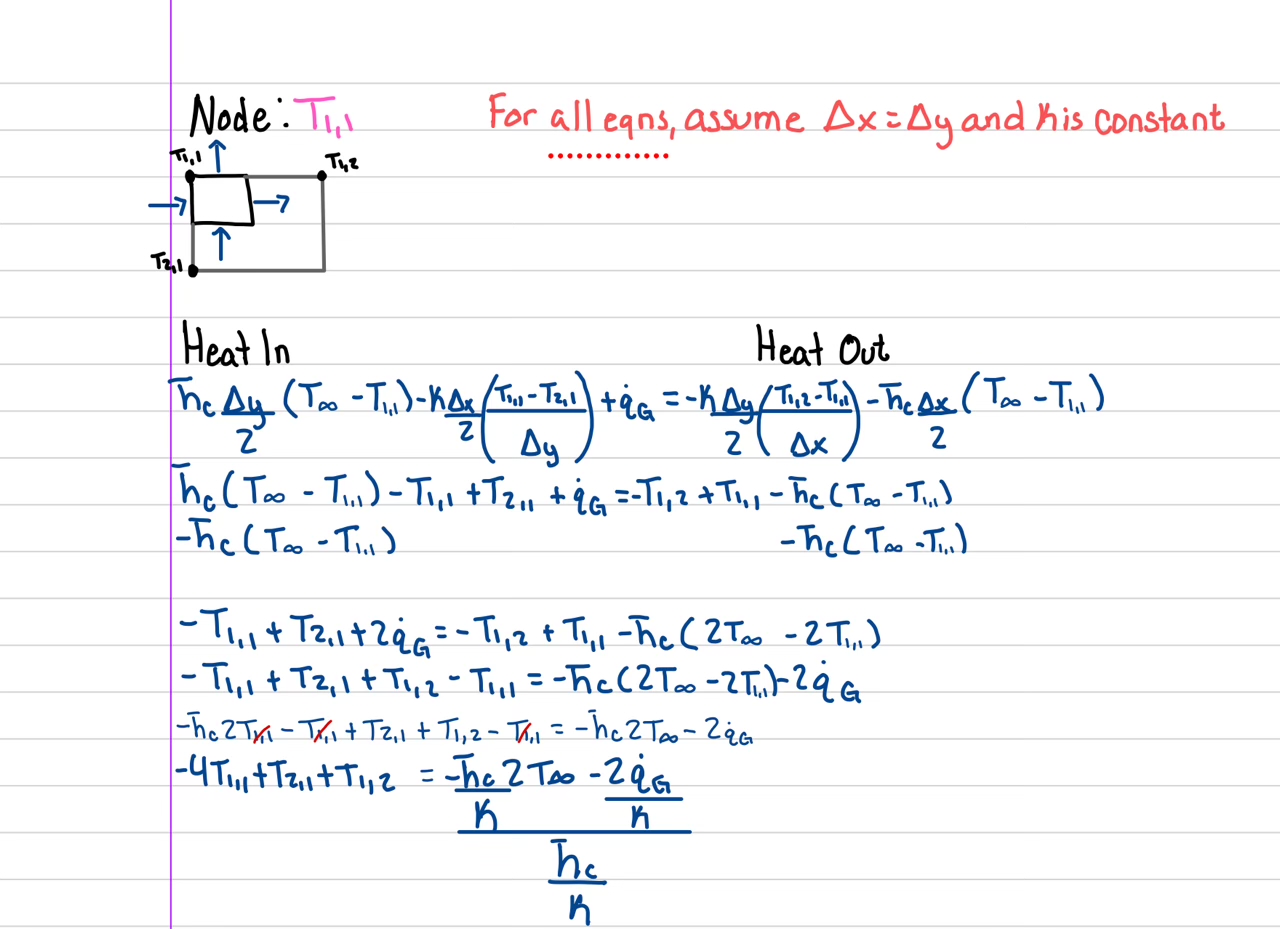 Node: T₁,₁ For all eqns, assume Δx = Δy and k is constant
T₁,₁ T₁,₂
T₂,₁
Heat In Heat Out
h̄c Δy/2 (T∞ - T₁,₁) - k Δx/2 ((T₁,₁ - T₂,₁)/Δy) + q̇G = -k Δy/2 ((T₁,₂ - T₁,₁)/Δx) - h̄c Δx/2 (T∞ - T₁,₁)
h̄c (T∞ - T₁,₁) - T₁,₁ + T₂,₁ + q̇G = -T₁,₂ + T₁,₁ - h̄c (T∞ - T₁,₁)
-h̄c (T∞ - T₁,₁) -h̄c (T∞ - T₁,₁)
-T₁,₁ + T₂,₁ + 2q̇G = -T₁,₂ + T₁,₁ - h̄c (2T∞ - 2T₁,₁)
-T₁,₁ + T₂,₁ + T₁,₂ - T₁,₁ = -h̄c (2T∞ - 2T₁,₁) - 2q̇G
-h̄c 2T₁,₁ - T₁,₁ + T₂,₁ + T₁,₂ - T₁,₁ = -h̄c 2T∞ - 2q̇G
-4T₁,₁ + T₂,₁ + T₁,₂ = (-h̄c/k 2T∞ - 2q̇G/k)/(h̄c/k)